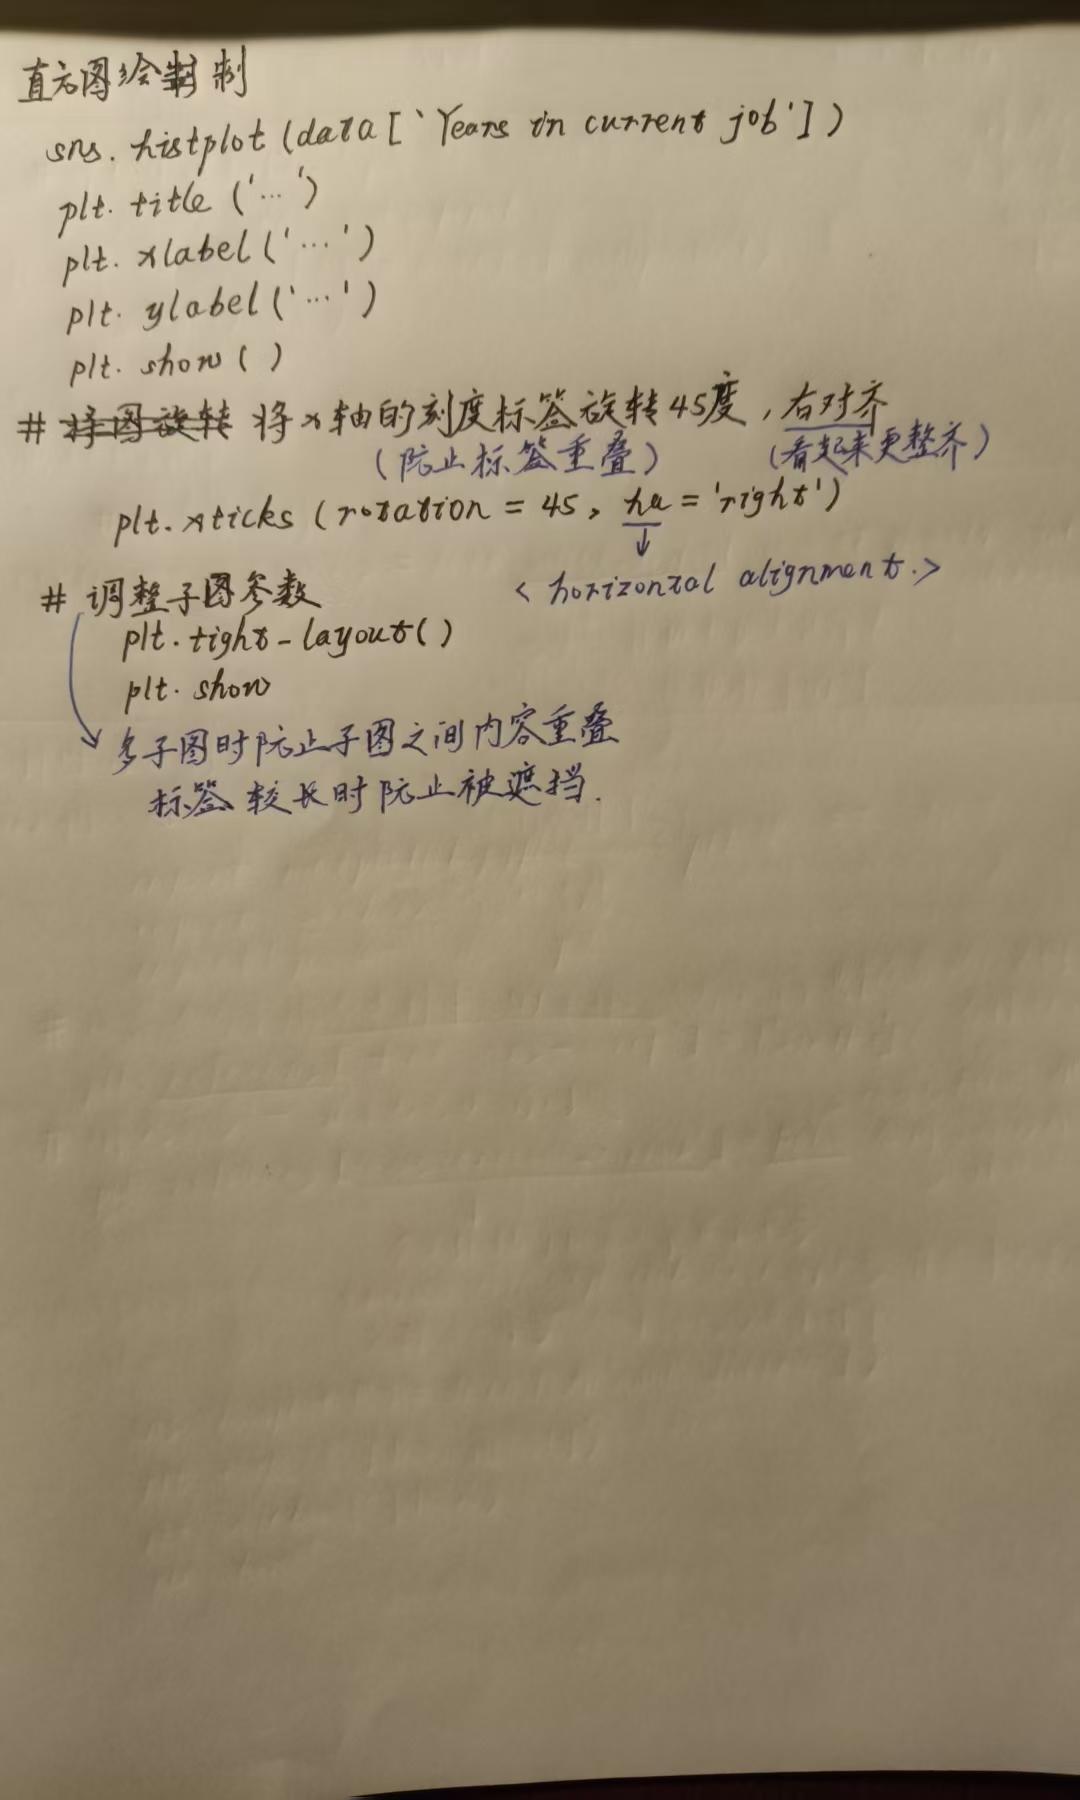 直方图绘制
sns. histplot (data [ 'Years in current job' ] )
plt. title ('...')
plt. xlabel ('...')
plt. ylabel ('...')
plt. show ( )
# 将图旋转 将x轴的刻度标签旋转45度，右对齐
(防止标签重叠) (看起来更整齐)
plt. xticks (rotation = 45, ha = 'right')
↓
# 调整子图参数 < horizontal alignment. >
plt. tight_layout( )
plt. show
多子图时防止子图之间内容重叠
标签较长时防止被遮挡.